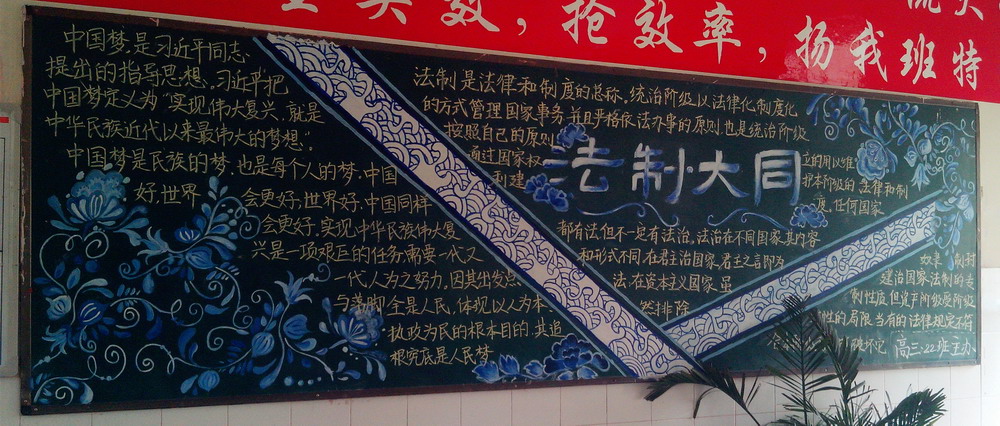 实效，抢效率，扬我班特
中国梦，是习近平同志
提出的指导思想，习近平把
中国梦定义为“实现伟大复兴，就是
中华民族近代以来最伟大的梦想”。
中国梦是民族的梦，也是每个人的梦，中国
好世界会更好，世界好，中国同样
会更好，实现中华民族伟大复
兴是一项艰巨的任务需要一代又
一代人为之努力，因其出发点
与着脚全是人民，体现以人为本
执政为民的根本目的，其追
根究底是人民梦
法制是法律和制度的总称。统治阶级以法律化，制度化
的方式管理国家事务，并且严格依法办事的原则，也是统治阶级
按照自己的原则
通过国家权
利建
法制大同
立的用以维
护本阶级的法律和制
度，任何国家
都有法但不一定有法治，法治在不同国家其内容
和形式不同，在君主治国家，君主之言即为
法，在资本主义国家，虽
然排除
制性度，但资产阶级受阶级
性的局限，当有的法律规定不符
高三·22班主办